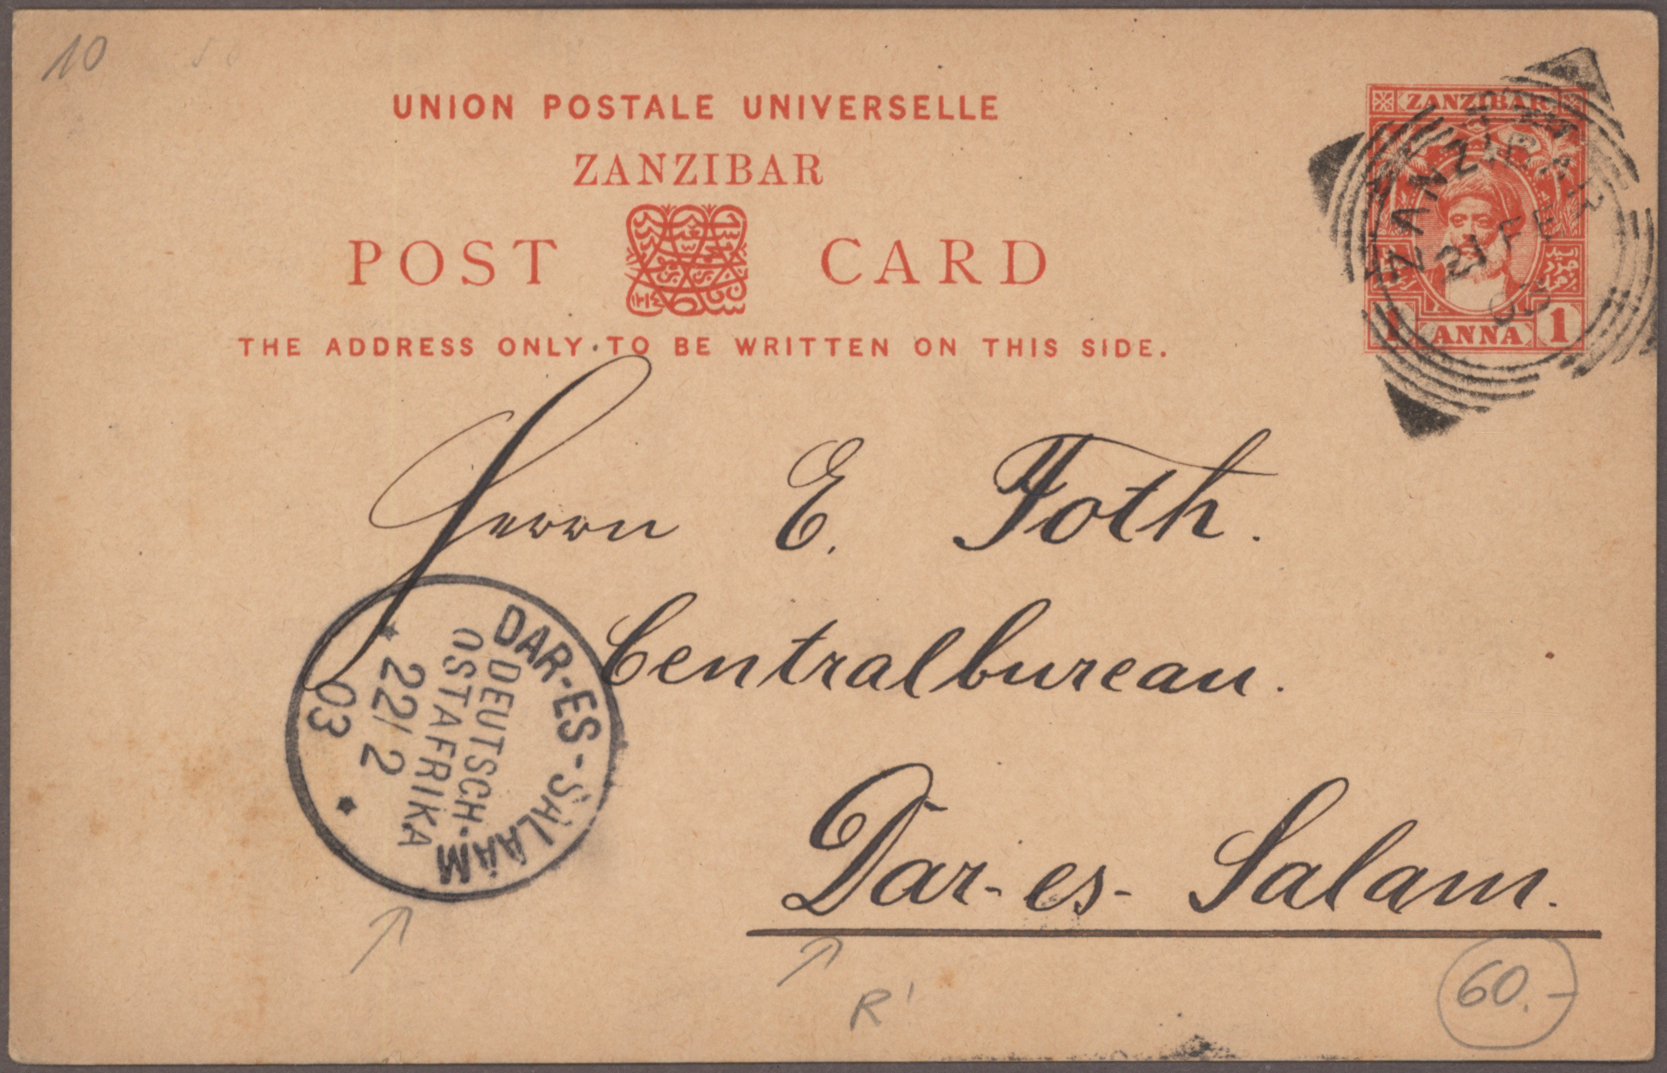 10
UNION POSTALE UNIVERSELLE
ZANZIBAR
POST CARD
THE ADDRESS ONLY TO BE WRITTEN ON THIS SIDE.
ZANZIBAR
1 ANNA 1
ZANZIBAR
21 FE
03
Herrn E. Foth.
Centralbureau.
Dar-es-Salam.
DAR-ES-SALAAM
DEUTSCH-
OSTAFRIKA
22/2
03
R'
60.-